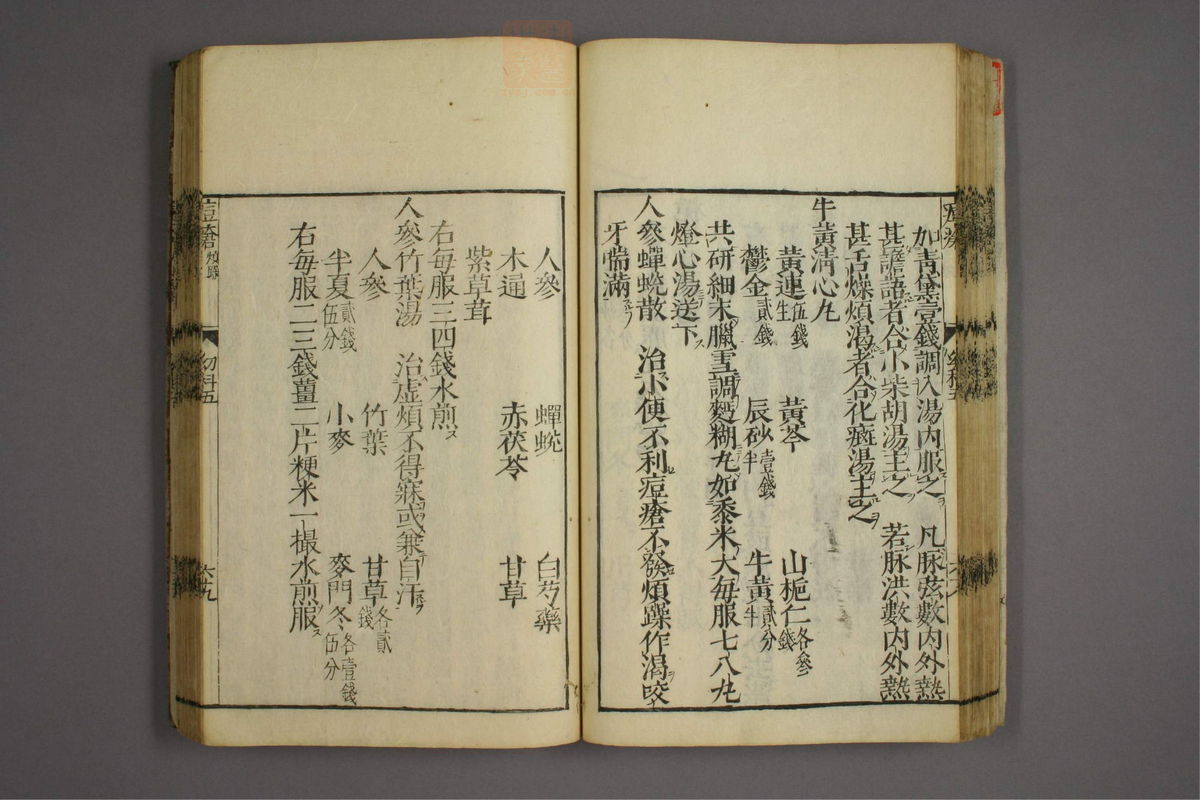 加青黛壹錢調入湯內服之　凡脉弦數內外熱
甚譫語者合小柴胡湯主之　若脉洪數內外熱
甚舌燥煩渴者合化癍湯主之
牛黃淸心丸
黃連生伍錢　黃芩　山梔仁各參錢
鬱金貳錢　辰砂壹錢半　牛黃貳分半
共硏細末臘雪調麪糊丸如黍米大每服七八丸
燈心湯送下
人參蟬蛻散　治小便不利痘瘡不發煩躁作渴咬
牙喘滿
人參　蟬蛻　白芍藥
木通　赤茯苓　甘草
紫草茸
右每服三四錢水煎
人參竹葉湯　治虛煩不得寐或兼自汗
人參　竹葉　甘草各貳錢
半夏貳錢伍分　小麥　麥門冬各壹錢伍分
右每服二三錢薑二片粳米一撮水煎服
痘瘡
幼科五
六十九